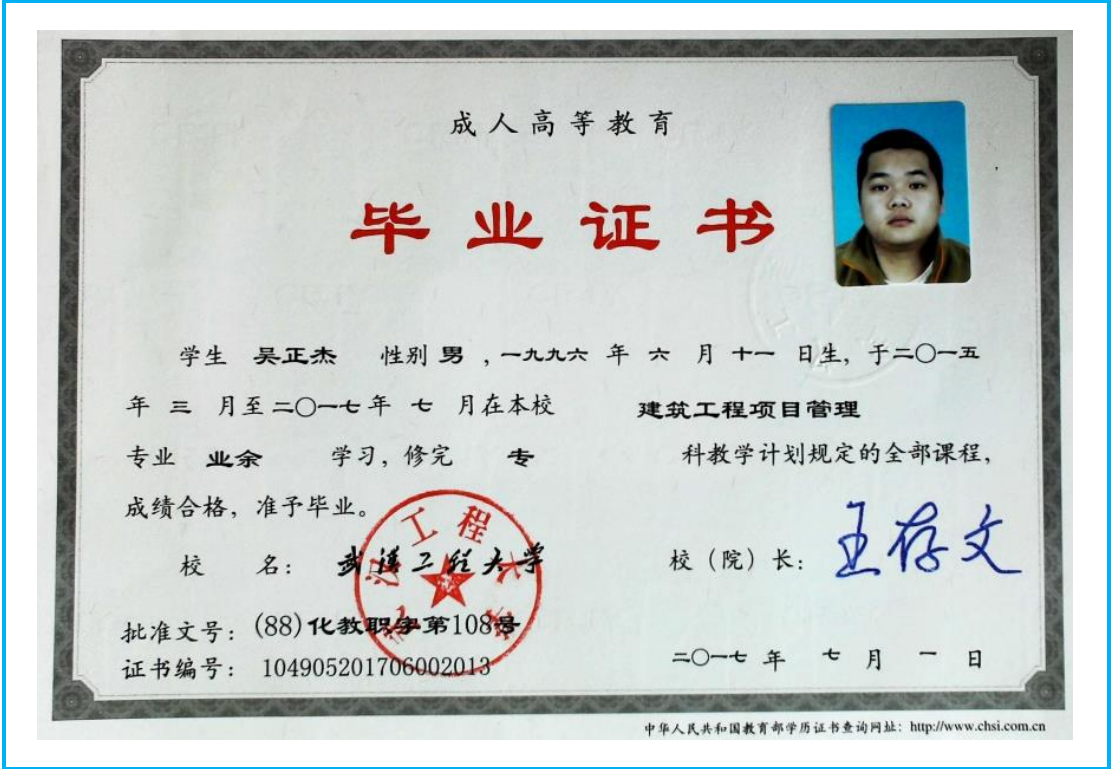 成人高等教育
毕业证书
学生 吴正杰 性别 男 ，一九九六 年 六 月 十一 日生，于二〇一五
年 三 月至 二〇一七 年 七 月在本校 建筑工程项目管理
专业 业余 学习，修完 专 科教学计划规定的全部课程，
成绩合格，准予毕业。
校 名： 武汉工程大学 校（院）长： 王存文
武汉工程大学
批准文号：(88)化教职字第108号
证书编号： 104905201706002013 二〇一七 年 七 月 一 日
中华人民共和国教育部学历证书查询网址：http://www.chsi.com.cn